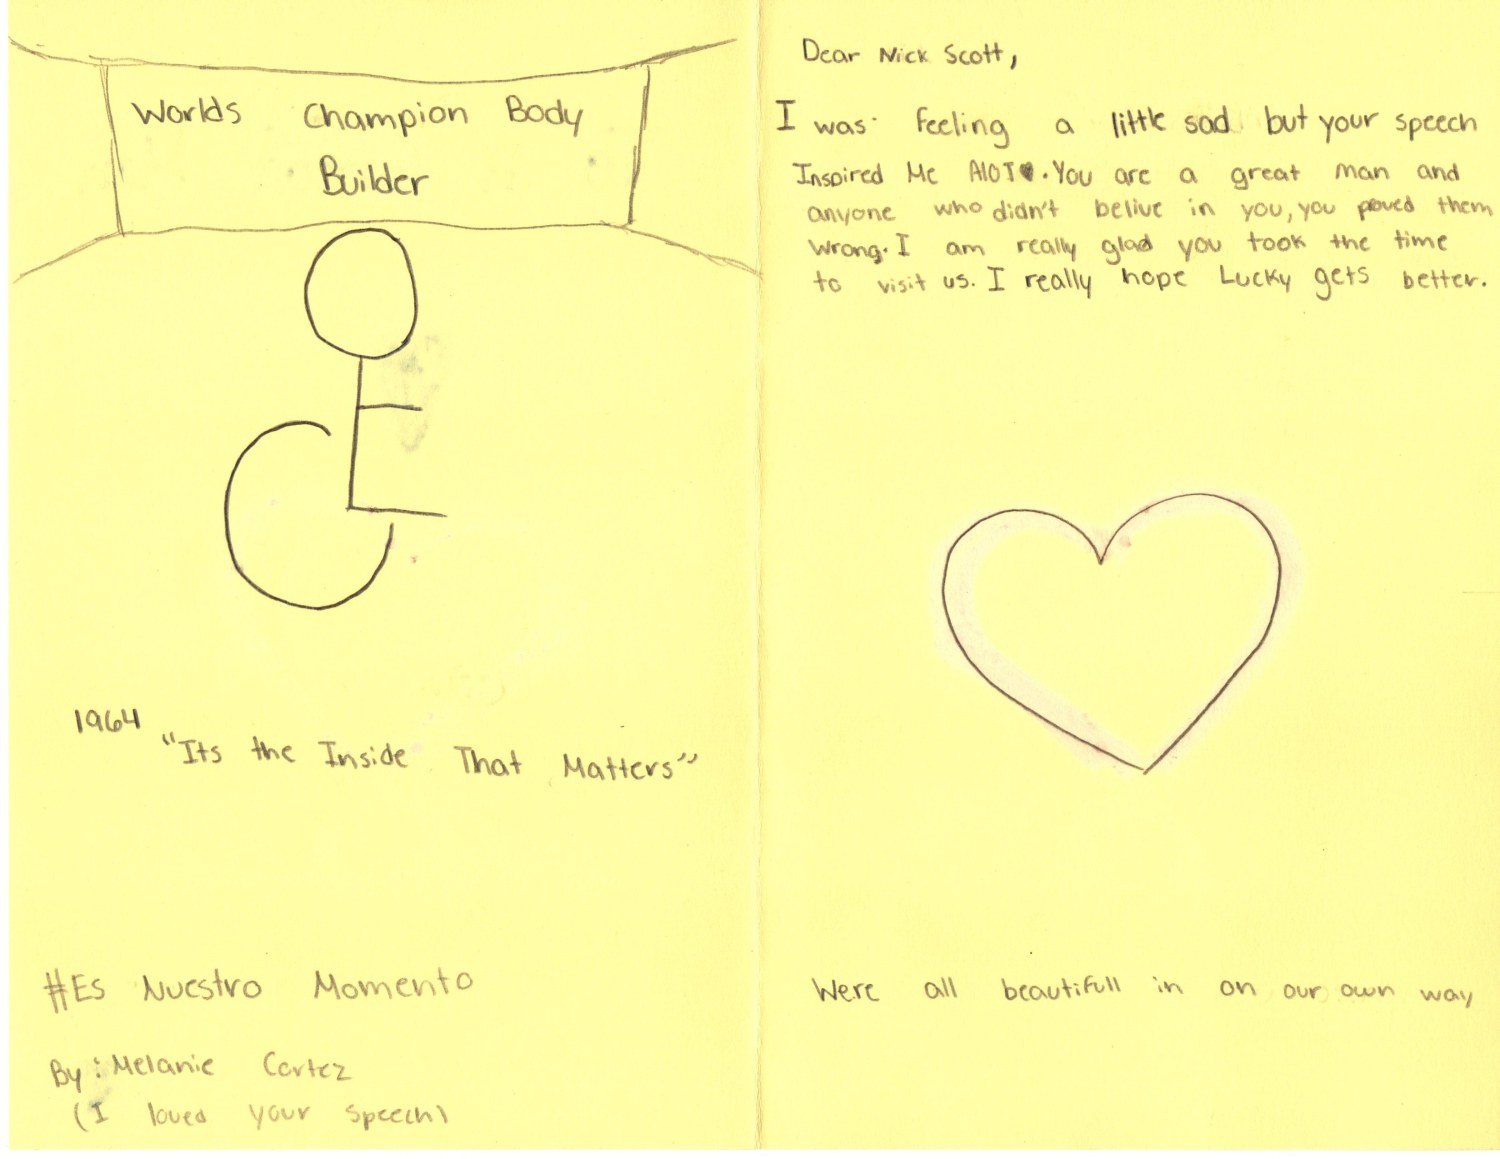 Worlds Champion Body
Builder
1964
"Its the Inside That Matters"
#Es Nuestro Momento
By: Melanie Cortez
(I loved your speech)
Dear Nick Scott,
I was feeling a little sad but your speech
Inspired Me AlOT. You are a great man and
anyone who didn't belive in you, you poved them
wrong. I am really glad you took the time
to visit us. I really hope Lucky gets better.
Were all beautifull in on our own way